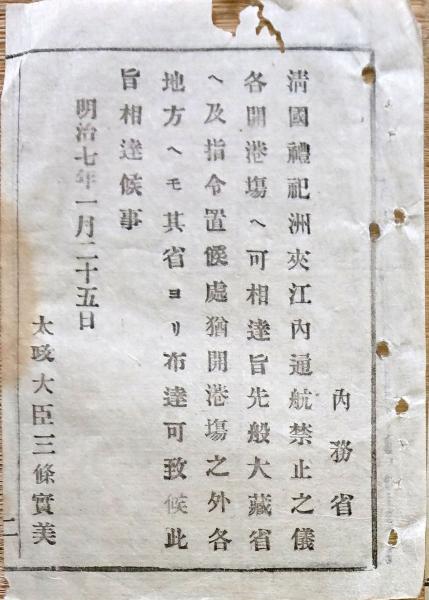 內務省
淸國禮祀洲夾江內通航禁止之儀
各開港塲ヘ可相達旨先般大藏省
ヘ及指令置候處猶開港塲之外各
地方ヘモ其省ヨリ布達可致候此
旨相達候事
明治七年一月二十五日
太政大臣三條實美
二